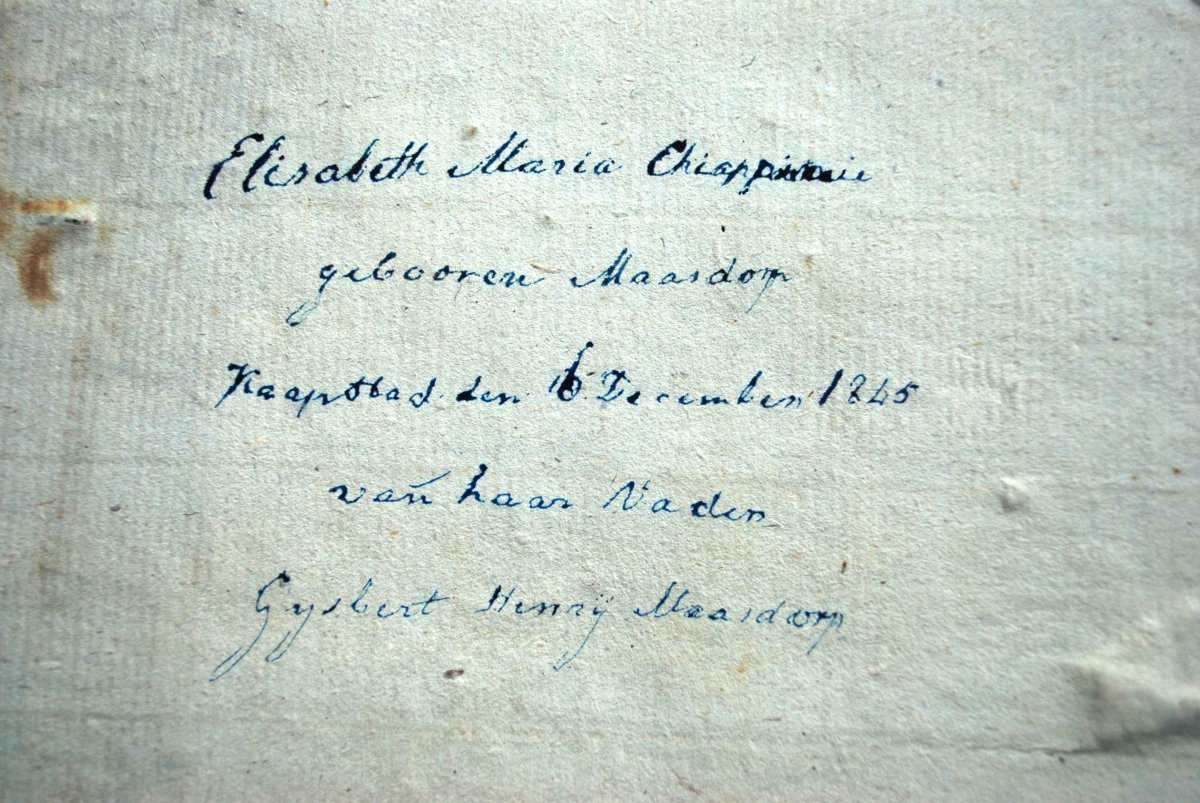 Elisabeth Maria Chiappinie
gebooren Maasdorp
Kaapstad den 16 December 1845
van haar Vader
Gysbert Henrÿ Maasdorp